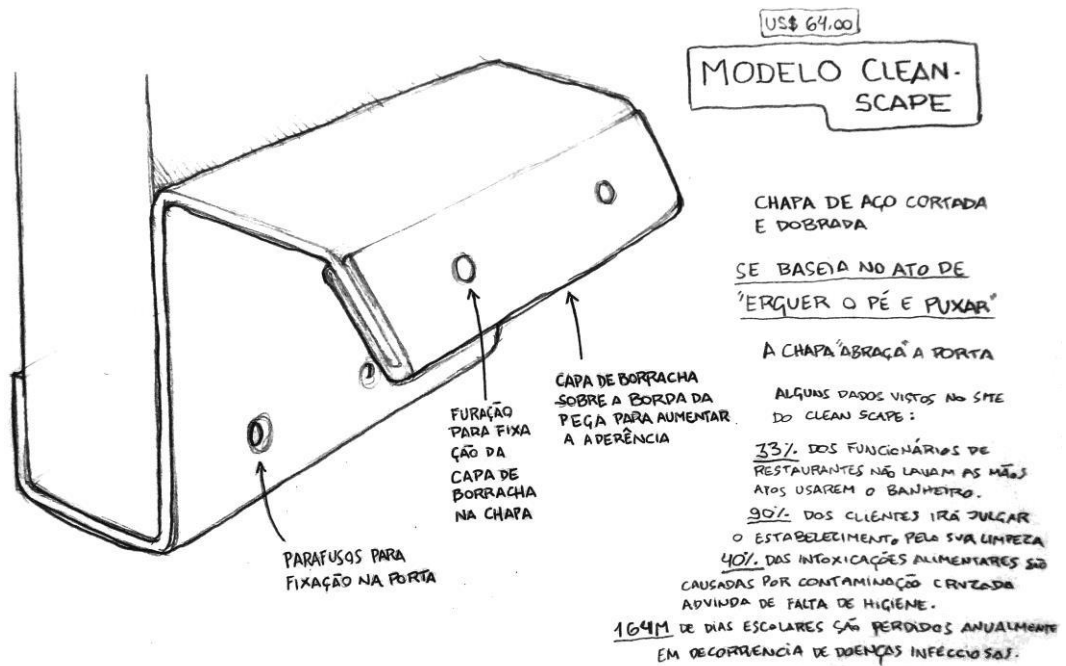 US$ 64.00
MODELO CLEAN-
SCAPE
CHAPA DE AÇO CORTADA
E DOBRADA
SE BASEIA NO ATO DE
"ERGUER O PÉ E PUXAR"
A CHAPA "ABRAÇA" A PORTA
ALGUNS DADOS VISTOS NO SITE
DO CLEAN SCAPE:
33% DOS FUNCIONÁRIOS DE
RESTAURANTES NÃO LAVAM AS MÃOS
APOS USAREM O BANHEIRO.
90% DOS CLIENTES IRÁ JULGAR
O ESTABELECIMENTO PELA SUA LIMPEZA
40% DAS INTOXICAÇÕES ALIMENTARES SÃO
CAUSADAS POR CONTAMINAÇÃO CRUZADA
ADVINDA DE FALTA DE HIGIENE.
164M DE DIAS ESCOLARES SÃO PERDIDOS ANUALMENTE
EM DECORRENCIA DE DOENÇAS INFECCIOSAS.
CAPA DE BORRACHA
SOBRE A BORDA DA
PEGA PARA AUMENTAR
A ADERÊNCIA
FURAÇÃO
PARA FIXA
ÇÃO DA
CAPA DE
BORRACHA
NA CHAPA
PARAFUSOS PARA
FIXAÇÃO NA PORTA